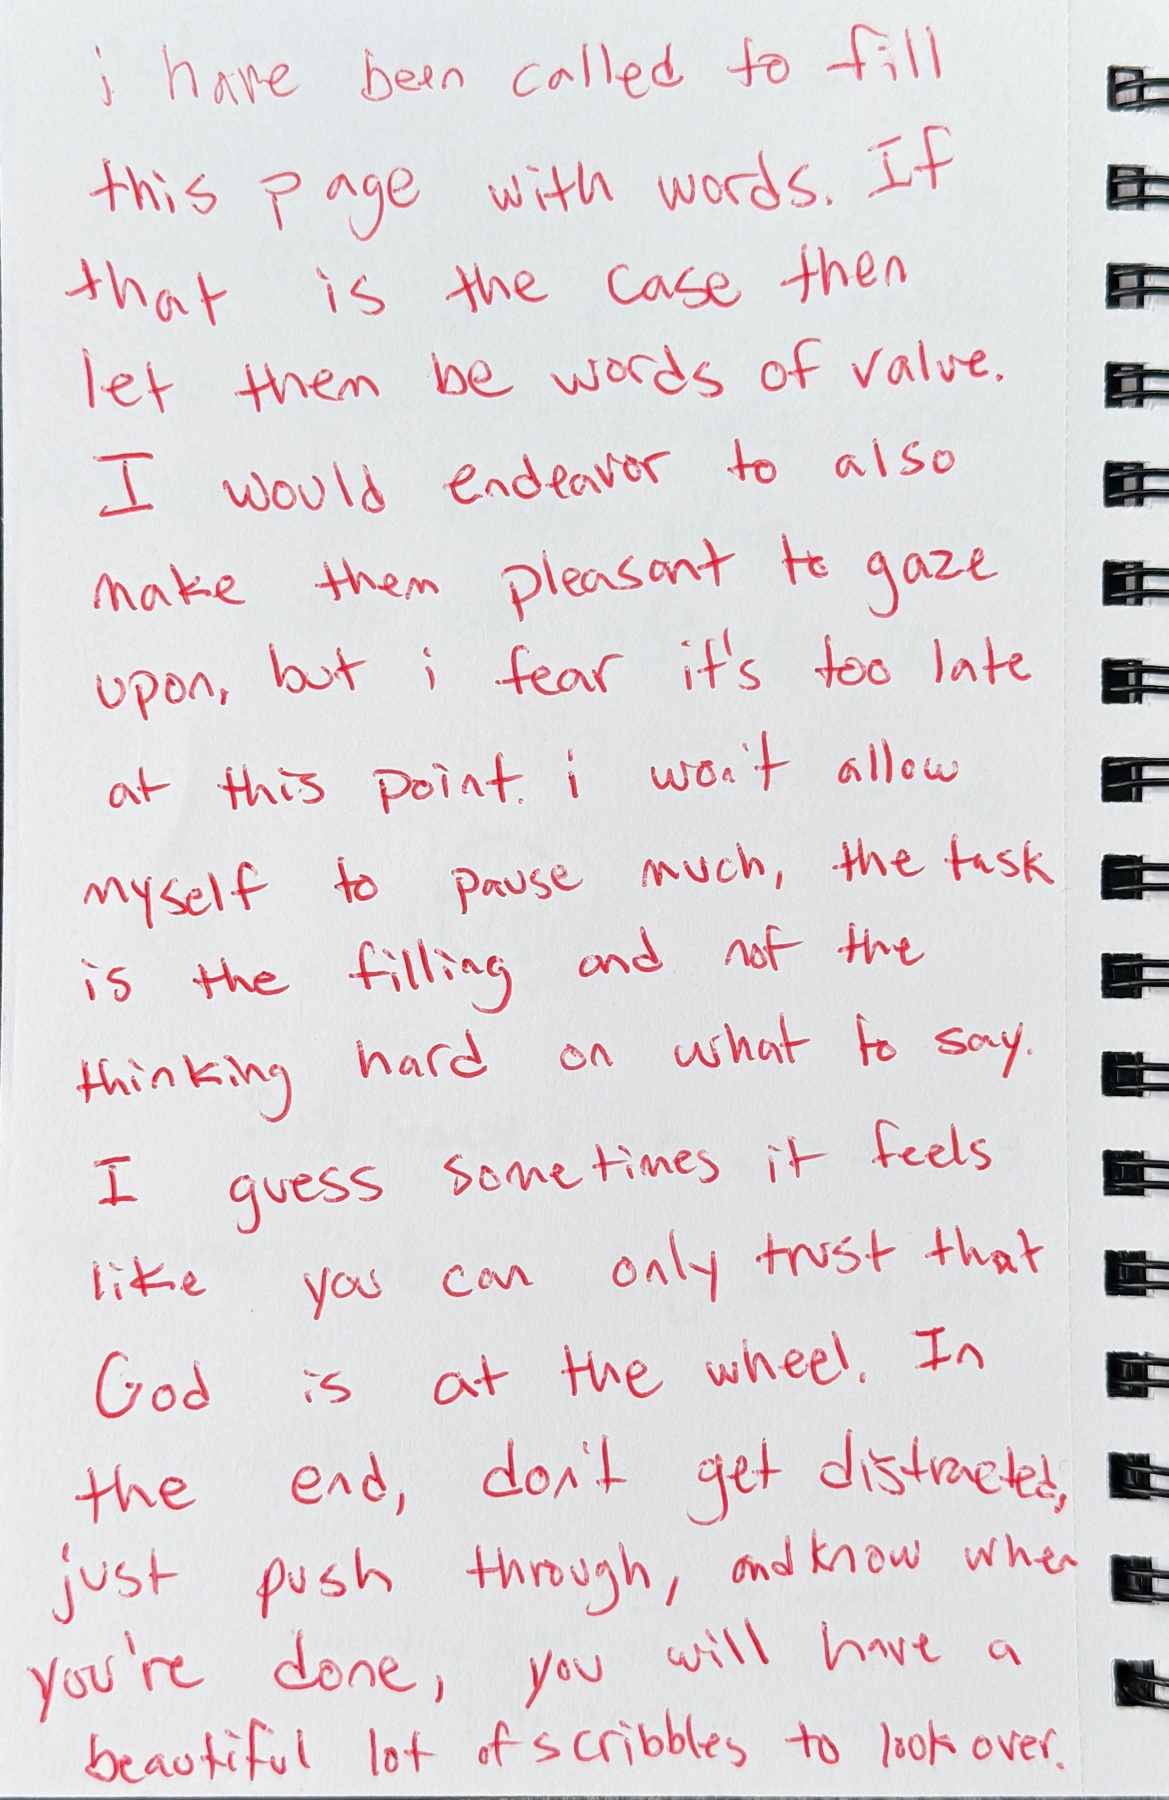 i have been called to fill
this page with words. If
that is the case then
let them be words of value.
I would endeavor to also
make them pleasant to gaze
upon, but i fear it's too late
at this point. i won't allow
myself to pause much, the task
is the filling and not the
thinking hard on what to say.
I guess sometimes it feels
like you can only trust that
God is at the wheel. In
the end, don't get distracted,
just push through, and know when
you're done, you will have a
beautiful lot of scribbles to look over.